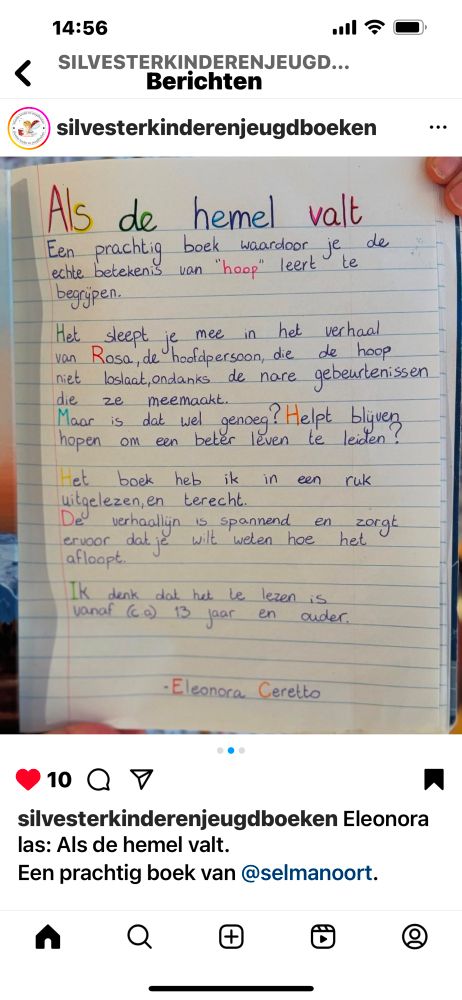 14:56
SILVESTERKINDERENJEUGD...
Berichten
silvesterkinderenjeugdboeken
Als de hemel valt
Een prachtig boek waardoor je de
echte betekenis van "hoop" leert te
begrijpen.
Het sleept je mee in het verhaal
van Rosa, de hoofdpersoon, die de hoop
niet loslaat, ondanks de nare gebeurtenissen
die ze meemaakt.
Maar is dat wel genoeg? Helpt blijven
hopen om een beter leven te leiden?
Het boek heb ik in een ruk
uitgelezen, en terecht.
De verhaallijn is spannend en zorgt
ervoor dat je wilt weten hoe het
afloopt.
Ik denk dat het te lezen is
vanaf (c.a) 13 jaar en ouder.
- Eleonora Ceretto
10
silvesterkinderenjeugdboeken Eleonora
las: Als de hemel valt.
Een prachtig boek van @selmanoort.